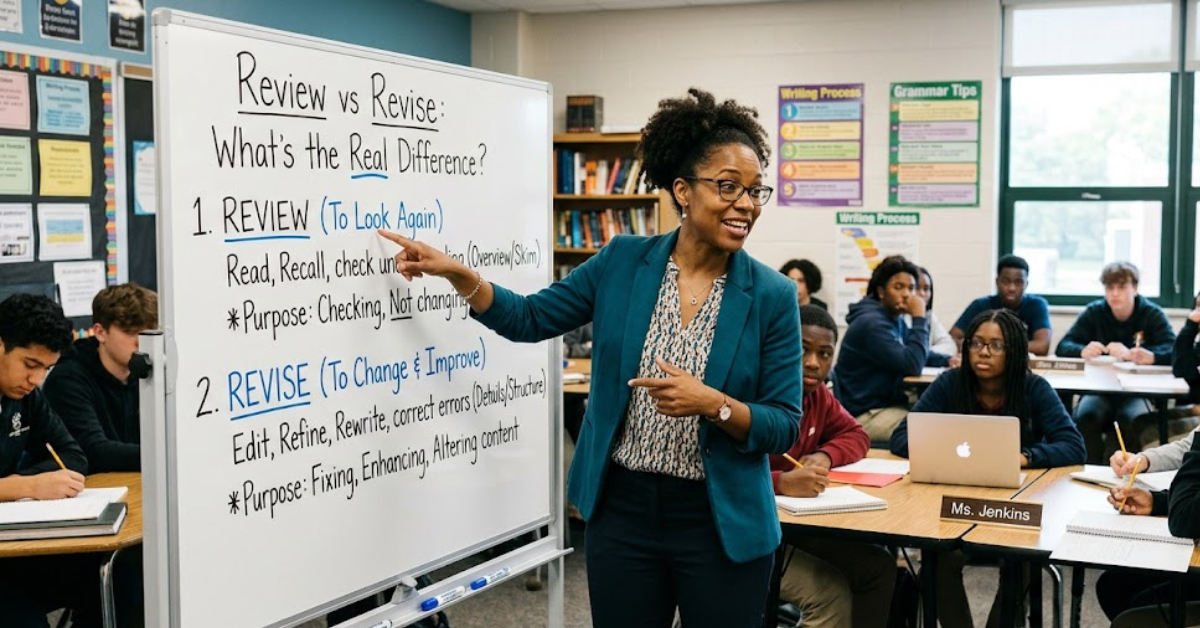 Review vs Revise:
What's the Real Difference?
1. REVIEW (To Look Again)
Read, Recall, check (Overview/Skim)
*Purpose: Checking, Not changing
2. REVISE (To Change & Improve)
Edit, Refine, Rewrite, correct errors (Details/Structure)
*Purpose: Fixing, Enhancing, Altering content
Writing Process
1
2
3
4
5
Grammar Tips
Writing Process
Ms. Jenkins